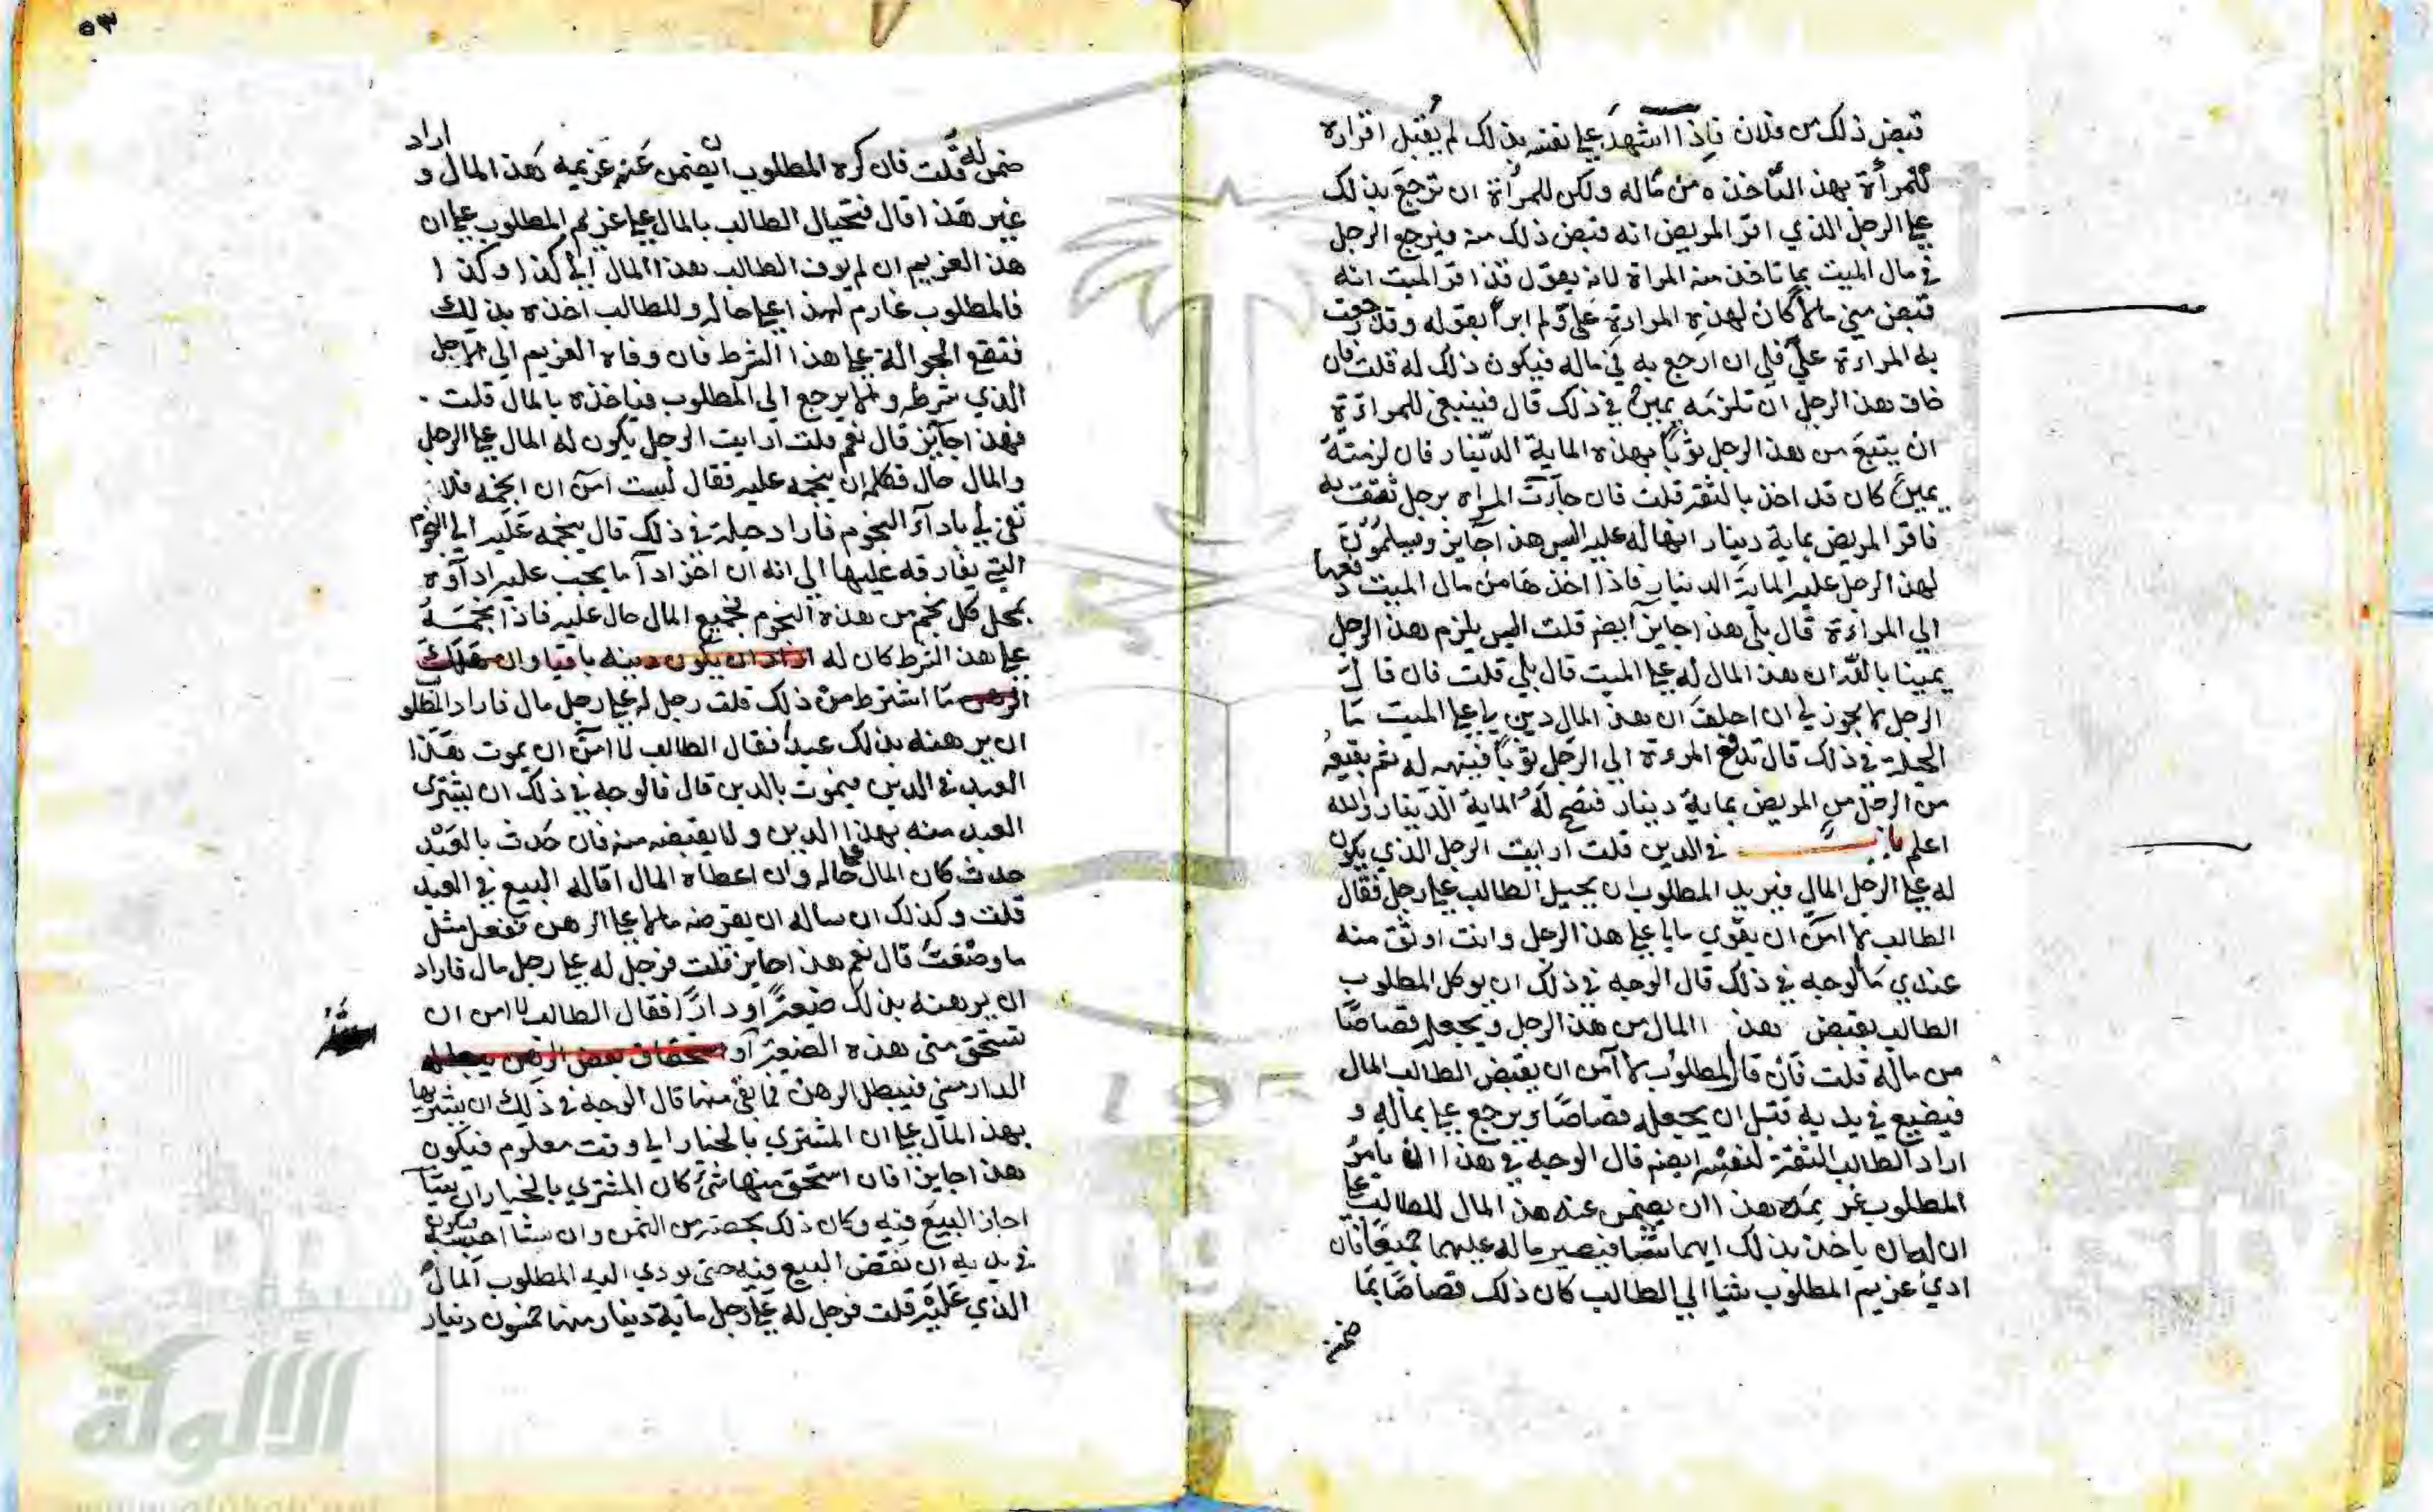 قبض ذلك من فلان فاذا اشهد علي نفسه بذلك لم يقبل اقراره
للمرأة بهذا لتأخذه من ماله ولكن للمرأة ان ترجع بذلك
علي الرجل الذي اقر المريض انه قبض ذلك منه فيرجع الرجل
في مال الميت بما تاخذ منه المراة لانه يقول قد اقر الميت انه
قبض مني مالا كان لهذه المراءة علي ولم ابرأ بقوله وقد رجعت
به المراءة علي فلي ان ارجع به في ماله فيكون ذلك له قلت فان
خاف هذا الرجل ان تلزمه يمين في ذلك قال فينبغي للمراءة
ان يتبع من هذا الرجل ثوبا بهذه الماية الدينار فان لزمته
يمين كان قد اخذ بالثقة قلت فان جاءت المراه برجل تثق به
فاقر المريض بماية دينار انها له عليه اليس هذا جايز ويسلمون
لهذا الرجل عليه الماية الدينار فاذا اخذها من مال الميت دفعها
الي المراءة قال بلي هذا جايز ايضا قلت اليس يلزم هذا الرجل
يمينا بالله ان هذا المال له علي الميت قال بلي قلت فان قال
الرجل لا يجوز لي ان احلف ان هذا المال دين لي علي الميت ما
الحيلة في ذلك قال تدفع المرءة الي الرجل ثوبا فيتهبه له ثم يقيعه
من الرجل من المريض بماية دينار فتصح له الماية الدينار والله
اعلم باب في الدين قلت ارايت الرجل الذي يكون
له علي الرجل المال فيريد المطلوب ان يحيل الطالب علي رجل فقال
الطالب لا امن ان يتوي مالي علي هذا الرجل وانت اوثق منه
عندي ما الوجه في ذلك قال الوجه في ذلك ان يوكل المطلوب
الطالب بقبض هذا المال من هذا الرجل ويجعله قصاصا
من ماله قلت فان قال المطلوب لا آمن ان يقبض الطالب المال
فيضيع في يديه قبل ان يجعله قصاصا ويرجع علي بماله و
اراد الطالب الثقة لنفسه ايضا قال الوجه في هذا ان يامر
المطلوب غريمه هذا ان يضمن عنه هذا المال للطالب علي
ان له ان ياخذ بذلك ايهما شا فيصير ماله عليهما جميعا فان
ادي غريم المطلوب شيا الي الطالب كان ذلك قصاصا بما
ضمن
٥٣
ضمن له قلت فان كره المطلوب ان يضمن عنه غريمه هذا المال و اراد
غير هذا قال فتحيال الطالب بالمال علي غريم المطلوب علي ان
هذا الغريم ان لم يوف الطالب هذا المال الي كذا وكذا
فالمطلوب غارم لهذا علي حاله وللطالب اخذه بذلك
فتقع الحوالة علي هذا الشرط فان وفاه الغريم الي الاجل
الذي شرطه والا يرجع الي المطلوب فياخذه بالمال قلت
فهذا جايز قال نعم قلت ارايت الرجل يكون له المال علي الرجل
والمال حال فكلمه ان ينجمه عليه فقال لست آمن ان انجمه فلا
تفي لي باداء النجوم فاراد حيلة في ذلك قال ينجمه عليه الي النجوم
التي يفارقه عليها الي انه ان اخر اداء ما يجب عليه اداؤه
بمحل كل نجم من هذه النجوم فجميع المال حال عليه فاذا نجمه
علي هذا الشرط كان له اراد ان يكون دينه باقيا وان هلك
الرهن ما اشترط من ذلك قلت رجل له علي رجل مال فاراد المطلو
ان يرهنه بذلك عبدا فقال الطالب لا امن ان يموت هذا
العبد في الدين فيموت بالدين قال فالوجه في ذلك ان يشتري
العبد منه بهذا الدين ولا يقبضه منه فان حدث بالعبد
حدث كان المال علي حاله وان اعطاه المال اقاله البيع في العبد
قلت وكذلك ان ساله ان يقرضه مالا علي الرهن تفعل مثل
ما وصفت قال نعم هذا جايز قلت فرجل له علي رجل مال فاراد
ان يرهنه بذلك ضيعة او دارا فقال الطالب لا امن ان
تستحق مني هذه الضيعة او استحقاق بعض الرهن يبطله
الدار مني فيبطل الرهن فما بقي منها قال الوجه في ذلك ان يشتريها
بهذا المال علي ان المشتري بالخيار الي وقت معلوم فيكون
هذا جايزا فان استحق منها شي كان المشتري بالخيار ان شا
اجاز البيع فيه وكان ذلك بحصته من الثمن وان شا
في يديه ان نقض البيع فيه حتي يودي اليه المطلوب المال
الذي عليه قلت فرجل له علي رجل ماية دينار منها خمسون دينار
شبكة
الألوكة